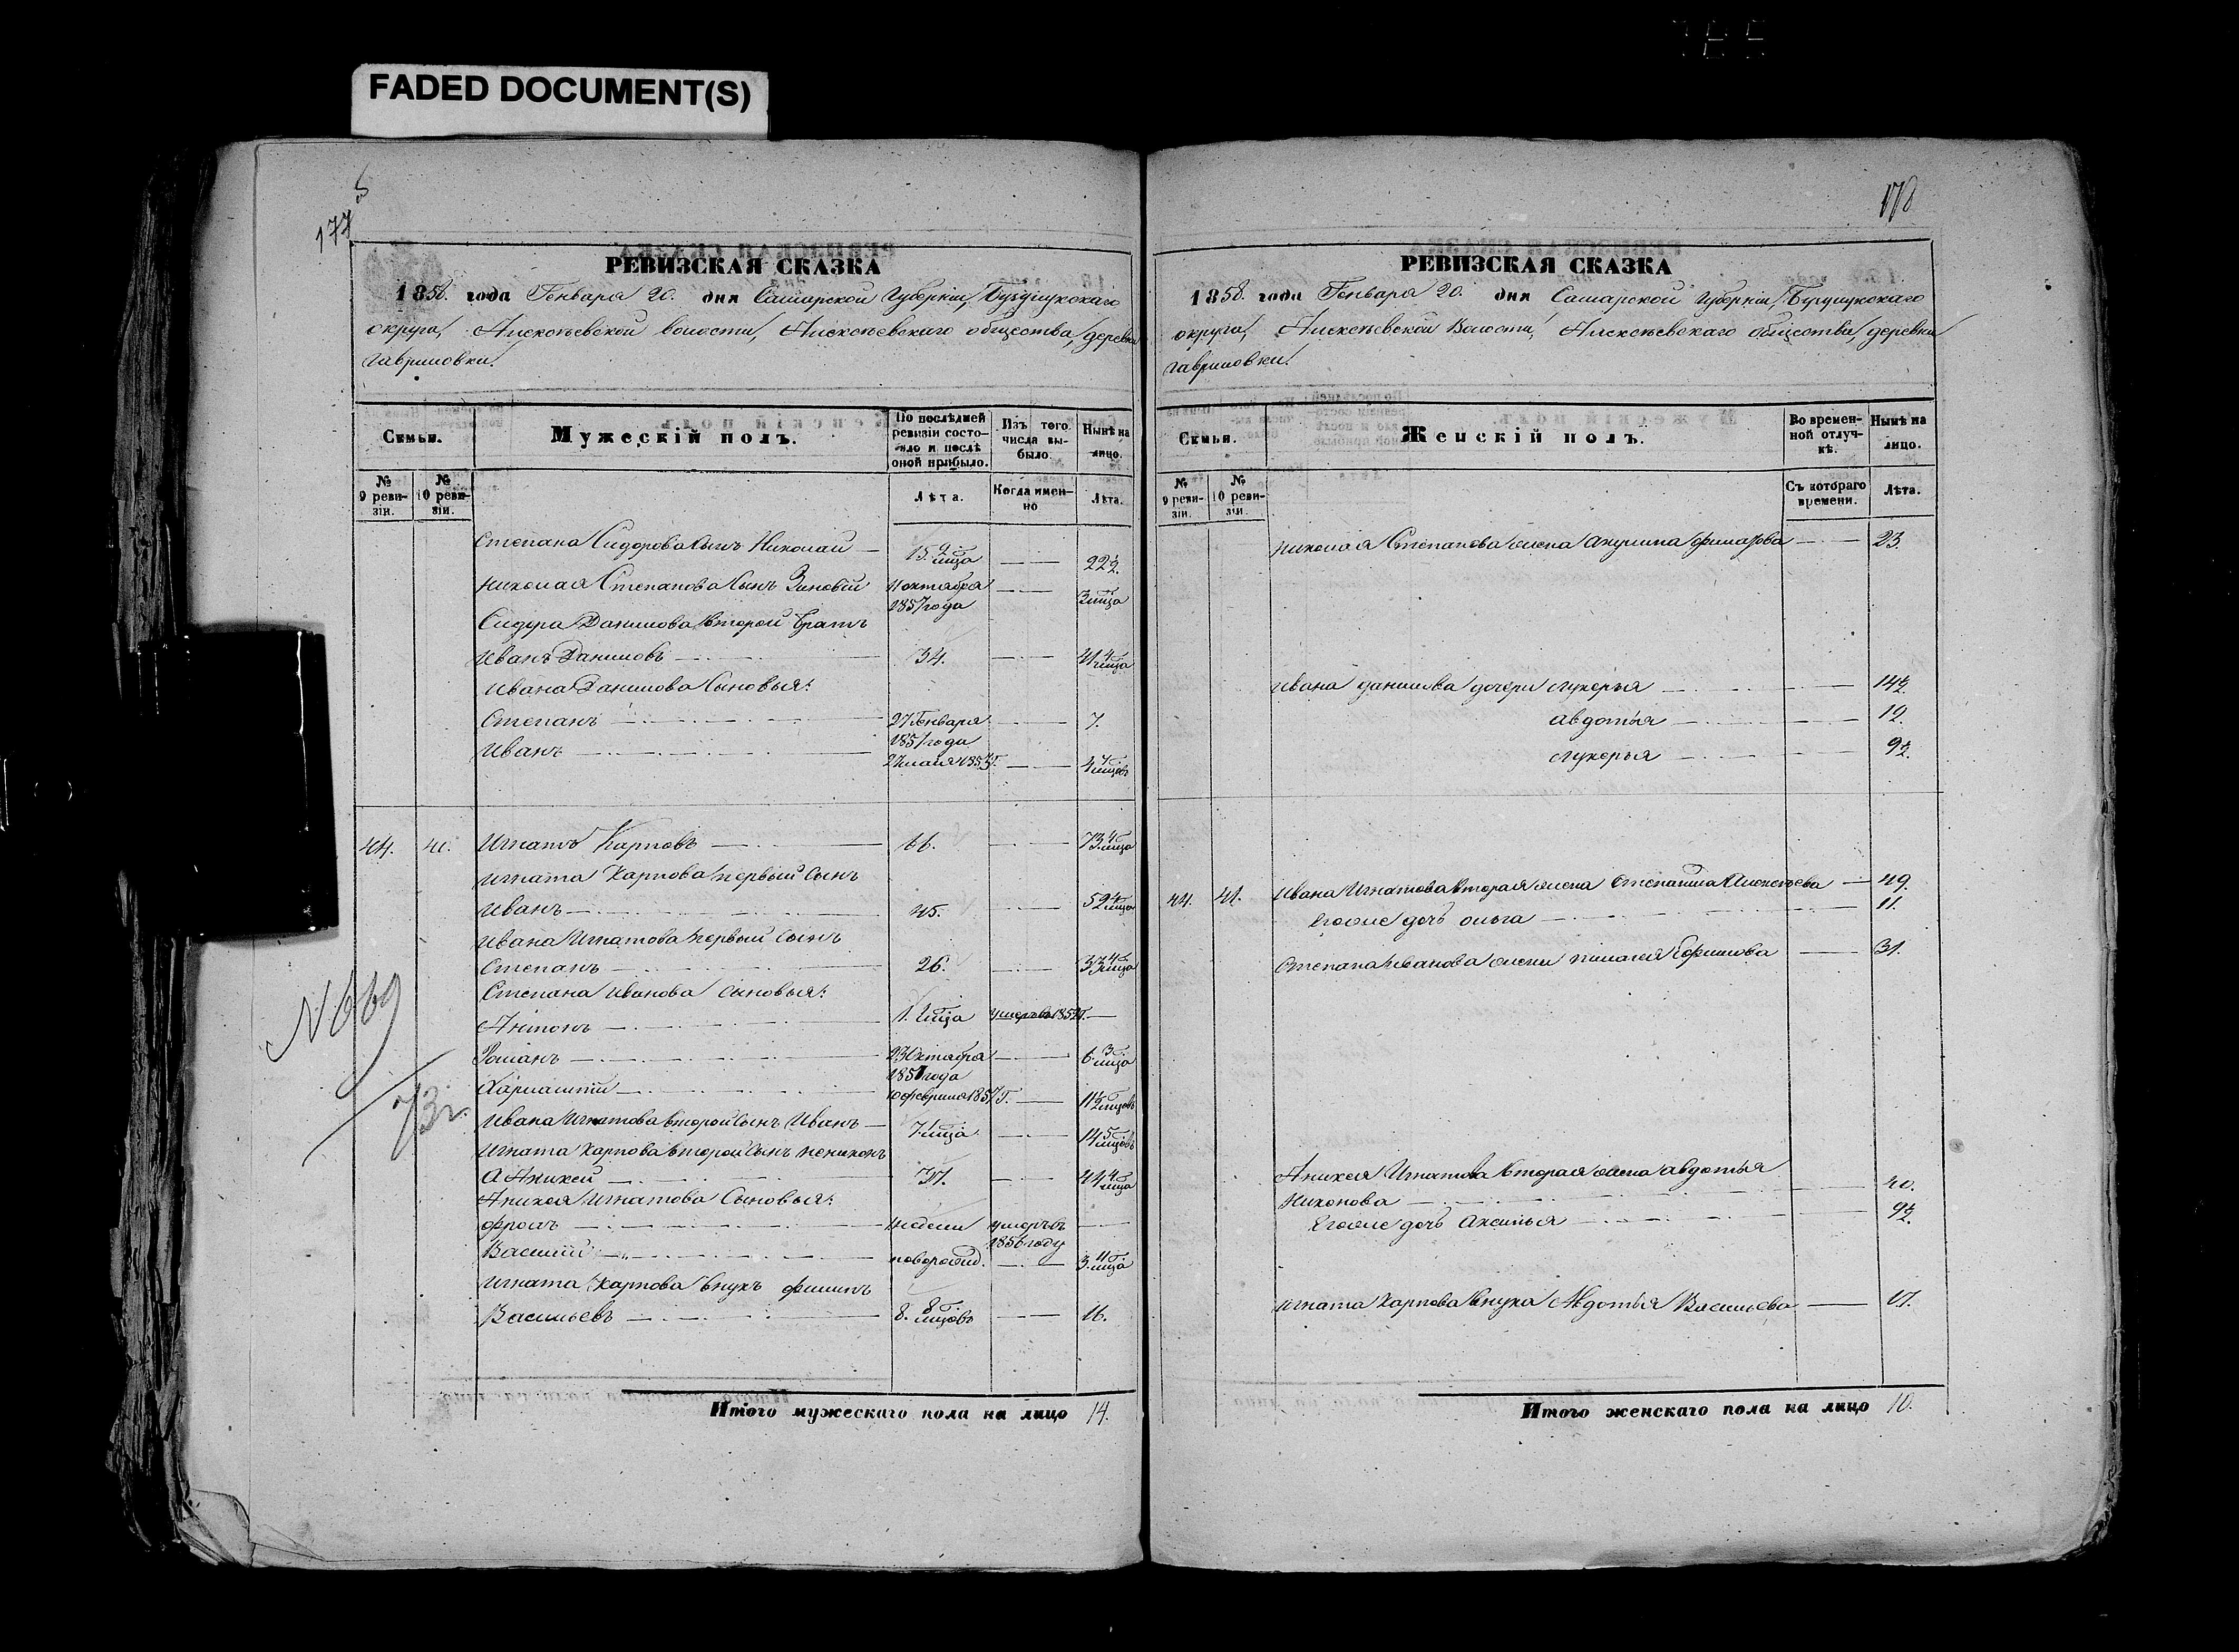 FADED DOCUMENT(S)
177
РЕВИЗСКАЯ СКАЗКА
1858. года Генваря 20. дня Самарской Губерніи, Бузулукскаго
округа, Алексѣевской волости, Алексѣевскаго общества, деревни
Гавриловки.
Семьи.
Мужескій полъ.
По послѣдней ревизіи состо-
яло и послѣ
оной прибыло.
Изъ того
числа вы-
было.
Нынѣ на
лицо.
№
9 реви-
зіи.
№
10 реви-
зіи.
Лѣта.
Когда имен-
но
Лѣта.
Степана Сидорова сынъ Николай — 15. 2 м̃ца — 22½.
Николая Степанова Сынъ Зиновій 11 октября 1857 года — 3 м̃ца
Сидора Данилова второй братъ
Иванъ Даниловъ — 34. — 41 4 м̃ца
Ивана Данилова Сыновья:
Степанъ — 27 Генваря 1851 года — 7.
Иванъ — 27 мая 1853 Г. — 4 7 м̃цовъ
44. 41. Игнатъ Карповъ — 66. — 73. 4 м̃ца
Игната Карпова первый Сынъ
Иванъ — 45. — 52 4 м̃ца
Ивана Игнатова первый сынъ
Степанъ — 26. — 33 4 м̃ца
Степана Иванова сыновья:
Антонъ — 1. 2 м̃ца умеръ въ 1852 Г. —
Романъ — 23 Октября 1851 года — 6 3 м̃ца
Харлампій — 10 февраля 1857 Г. — 11½ м̃цовъ
Ивана Игнатова второй сынъ Иванъ — 7. 1 м̃ца — 14 5 м̃цовъ
Игната Карпова второй сынъ не никонъ
А Аникей — 37. — 44 4 м̃ца
Аникея Игнатова Сыновья:
Фролъ — недели умеръ въ 1856 году —
Василій — новорожд. — 3. 11 м̃ца
Игната Карпова внукъ филипъ
Васильевъ — 8. 8 м̃цовъ — 16.
N 669
73 г.
Итого мужескаго пола на лицо 14.
178
РЕВИЗСКАЯ СКАЗКА
1858. года Генваря 20. дня Самарской Губерніи, Бузулукскаго
округа, Алексѣевской Волости, Алексѣевскаго общества, деревни
Гавриловки.
Семьи.
Женскій полъ.
Во времен-
ной отлуч-
кѣ.
Нынѣ на
лицо.
№
9 реви-
зіи.
№
10 реви-
зіи.
Съ котораго
времени.
Лѣта.
Николая Степанова жена Акулина филатова — 23.
Ивана данилова дочери Лукерья — 14½.
Авдотья — 12.
Лукерья — 9½.
44. 41. Ивана Игнатова вторая жена Степанида Алексѣева — 49.
Егоже дочь Ольга — 11.
Степана Иванова жена Пилагея Ефимова — 31.
Аникея Игнатова вторая жена авдотья
Никонова — 40.
Егоже дочь Аксинья — 9½.
Игната Карпова внука Авдотья Васильева — 17.
Итого женскаго пола на лицо 10.